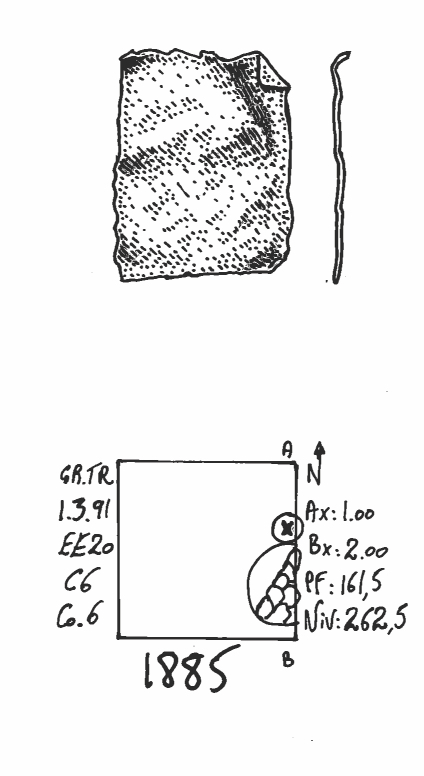 A
N
GR.TR
1.3.91
EE20
C6
Co.6
Ax: 1.00
Bx: 2.00
PF: 161,5
Niv: 262,5
B
1885